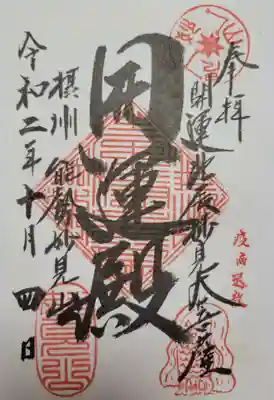 奉拝
開運北辰妙見大菩薩
開運殿
摂州 能勢妙見山
令和二年十月四日
疫病退散